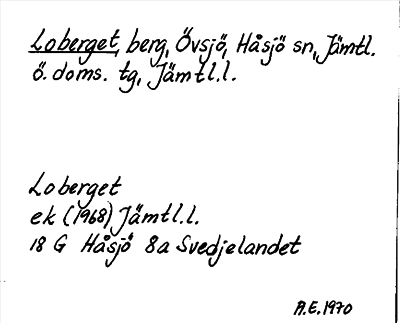 Loberget, berg, Övsjö, Håsjö sn, Jämtl.
ö. doms. tg, Jämtl.l.
Loberget
ek (1968) Jämtl.l.
18 G Håsjö 8a Svedjelandet
A.E. 1970